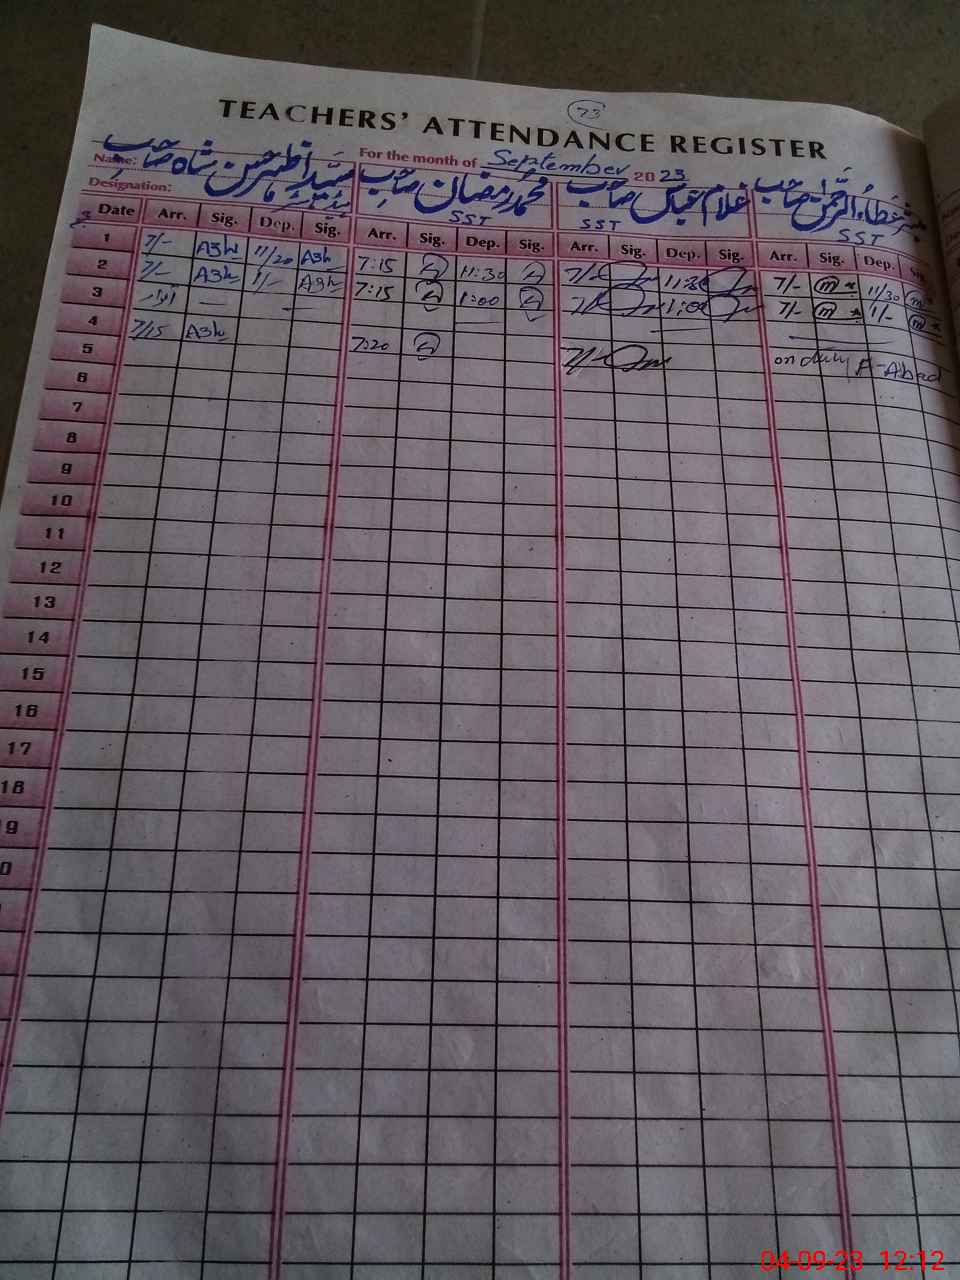 73
TEACHERS' ATTENDANCE REGISTER
Name: سید اظہر حسن شاہ صاحب For the month of September 2023
Designation: محمد رمضان صاحب غلام عباس صاحب عطاء الرحمٰن صاحب
SST SST SST
Date Arr. Sig. Dep. Sig. Arr. Sig. Dep. Sig. Arr. Sig. Dep. Sig. Arr. Sig. Dep. Sig.
1 7/- Azh 11/20 Azh 7:15 11:30 7/- 11:30 7/- m 11/30 m
2 7/- Azh 1/- Azh 7:15 1:00 7/- 1:00 7/- m 1/- m
3 اتوار — —
4 7/15 Azh 7:20 7/- on duty A-Abad
5
6
7
8
9
10
11
12
13
14
15
16
17
18
9
0
04-09-23 12:12